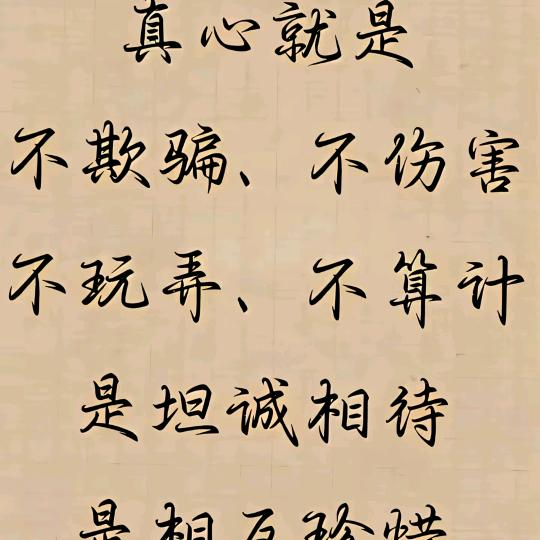 真心就是
不欺骗、不伤害
不玩弄、不算计
是坦诚相待
是相互珍惜